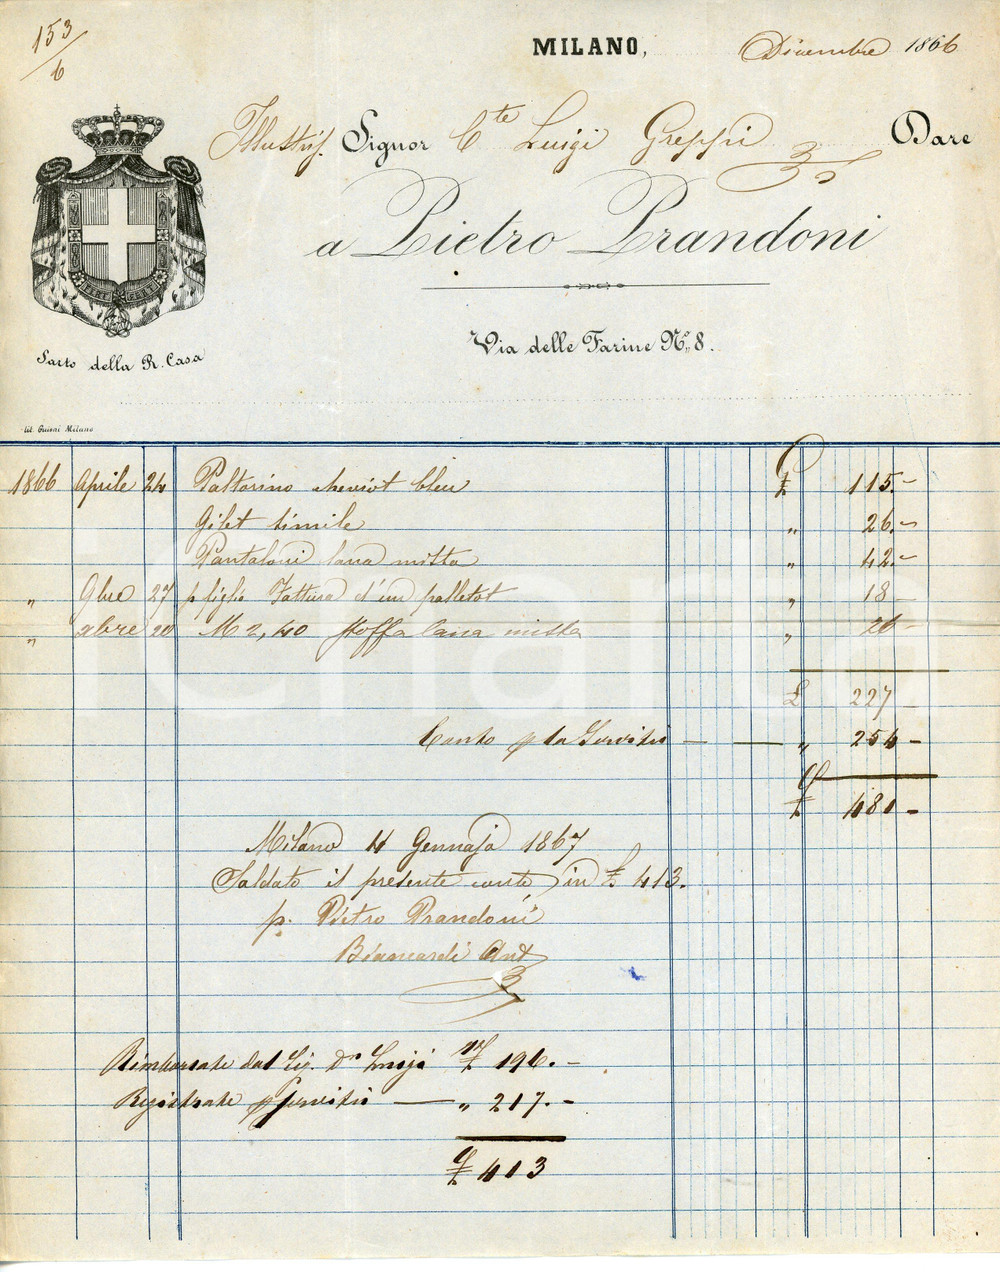 153/6
MILANO, Dicembre 1866
Illustris. Signor Cte Luigi Greppi Dare
a Pietro Prandoni
Via delle Farine No. 8.
Sarto della R. Casa
Lit. Guioni Milano
1866 Aprile 24 Paltorino cheviot bleu £ 115.-
Gilet simile " 26.-
Pantaloni lana mista " 42.-
" 9bre 27 p figlio Fattura d'un palletot " 18-
" xbre 20 M 2,40 stoffa lana mista " 26-
£ 227-
Conto p la Servitù — — " 254-
£ 481-
Milano 4 Gennajo 1867
Saldato il presente conto in £ 413.
p. Pietro Prandoni
Biancardi Ant
Rimborsate dal Sig. Dn Luigi £ 196.-
Registrate p Servitù — " 217.-
£ 413